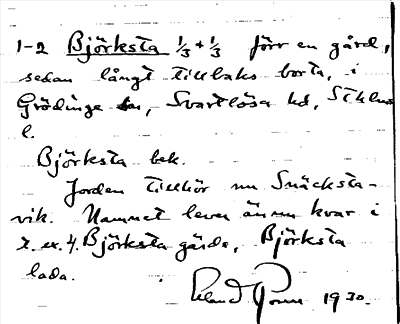 1-2 Björksta 1/3 + 1/3 förr en gård,
sedan långt tillbaks borta, i
Grödinge sn, Svartlösa hd, Sthlms
l.
Björksta bek.
Jorden tillhör nu Snäcksta-
vik. Namnet lever ännu kvar i
t. ex. Björksta gärde, Björksta
lada.
Erland 1930.